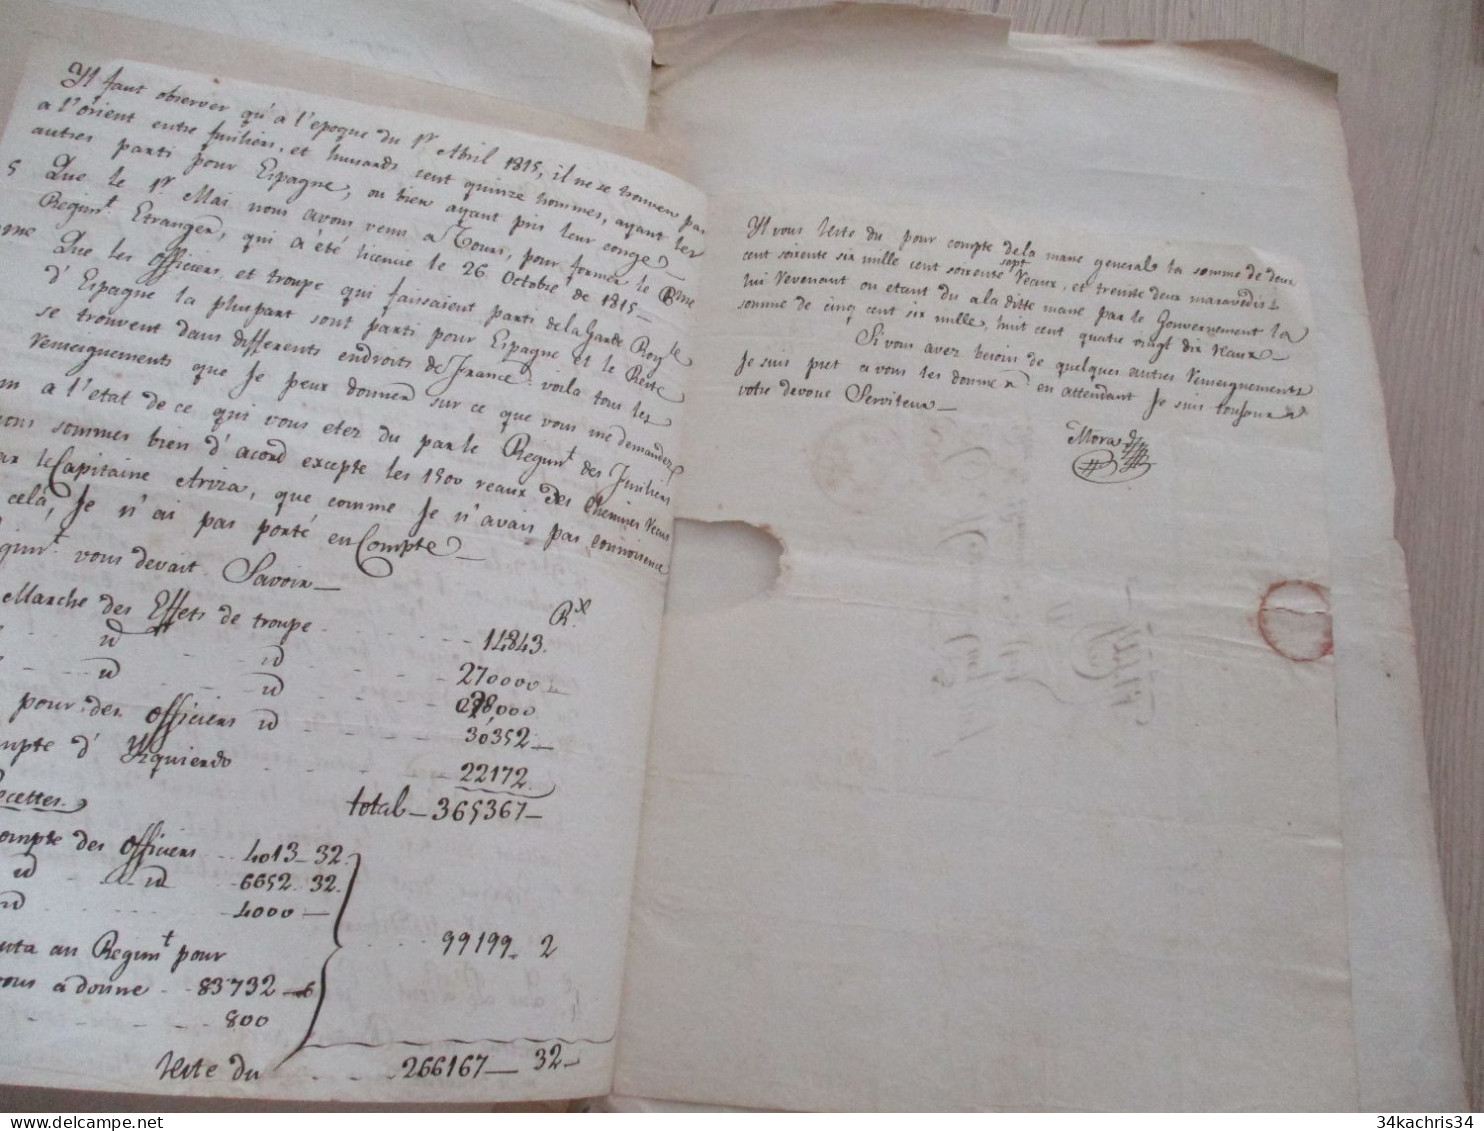 Yl faut observer qu'à l'époque du 1er Abril 1815, il ne se trouven pas
a l'órient entre fusiliers, et hussards cent quinze hommes, ayant les
autres parti pour Espagne, ou bien ayant pris leur congé
5 Que le 1er Mai nous avons venu a Tours, pour former le
Regimt Etranger, qui à été licencié le 26 Octobre de 1815 —
Que les officiers, et troupe qui faisaient parti de la Garde Royle
d'Espagne la plupart sont parti pour Espagne et le Reste
se trouvent dans differents endroits de France: voila tous les
renseignements que Je peux donner sur ce que vous me demandez
a l'état de ce qui vous etez du par le Regimt des Fusiliers
sommes bien d'acord excepte les 1500 reaux des Chemises
le Capitaine Ariza, que comme Je n'avais pas connoisence
celà, Je n'ai pas porté en Compte —
vous devait Savoir —
Marche des Effets de troupe . . . . . 14843.
Rx
id id . . . 270000
id id . . . 28,000
pour des officiers id . . . 30352 —
d'Yzquierdo . . . 22172
total — 365367 —
des officiers . . 4013 — 32
id . . id . . 6652. 32
id . . . 4000 —
99199 — 2
au Regimt pour
à donne . . 83732 — 6
. . . 800
reste du . . . 266167 — 32 —
Yl vous reste du pour compte de la mane general la somme de deux
cent soixente six mille cent soixente sept reaux, et trente deux maravedis
lui revenant ou etant du a la ditte mane par le Gouvernement la
somme de cinq cent six mille, huit cent quatre vingt dix reaux —
Si vous avez besoin de quelques autres renseignements
Je suis pret a vous les donner en attendant Je suis toujours
votre devoue Serviteur —
Mora
34kachris34
delcampe.net